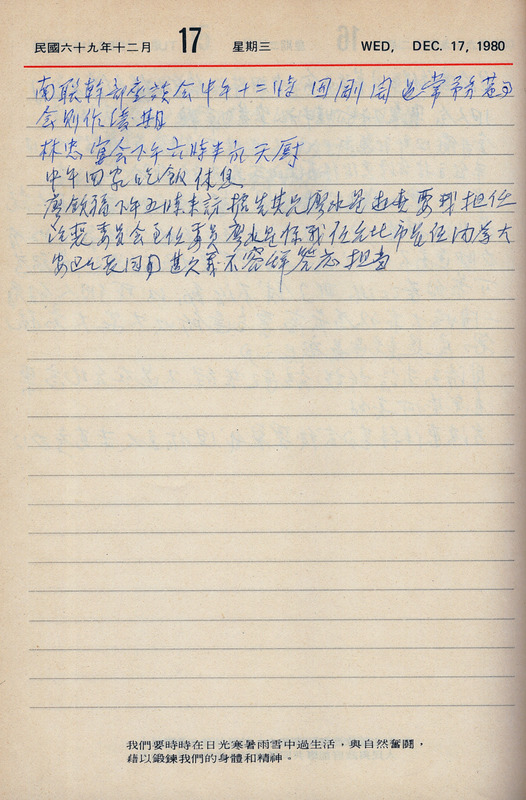 民國六十九年十二月 17 星期三 WED, DEC. 17, 1980
南聯幹部座談會中午十二時 因剛開過常務若召
會則作後期
林忠宴會下午六時半於天廚
中午回家吃飯休息
廖欽福下午五時來訪 據告其兄廖水 要我担任
治喪委員會主任委員 廖水 係我任台北市 大
安區 長因 其父義不容辭答應担當
我們要時時在日光寒暑雨雪中過生活，與自然奮鬪，
藉以鍛鍊我們的身體和精神。